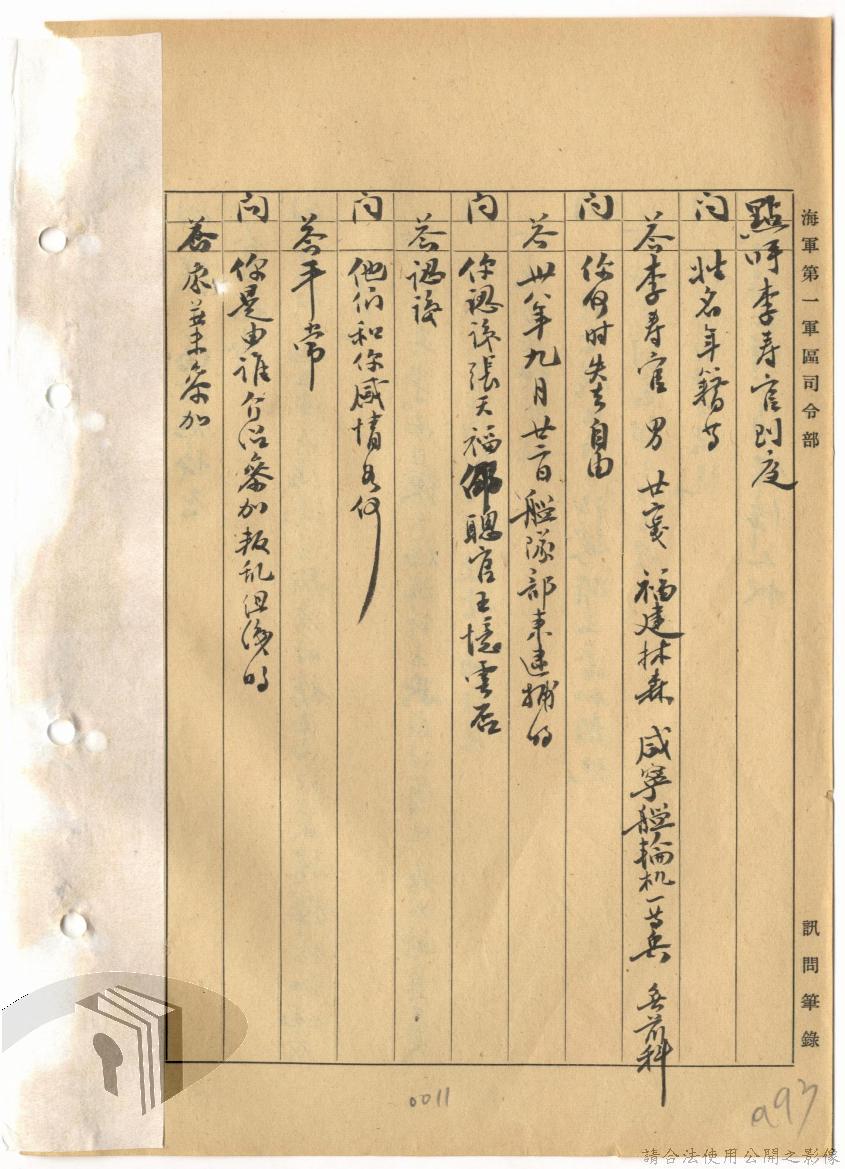 海軍第一軍區司令部　訊問筆錄
點呼李寿官到庭
问　姓名年籍等
答　李寿官 男 廿歲 福建林森 咸寧艦輪机一等兵 無前科
问　你何时失去自由
答　卅八年九月廿二日艦隊部来逮捕的
问　你認识張天福鄭聰官王憶雲否
答　認识
问　他们和你感情如何
答　平常
问　你是由谁介绍參加叛乱组織的
答　參加
0011
a93
請合法使用公開之影像